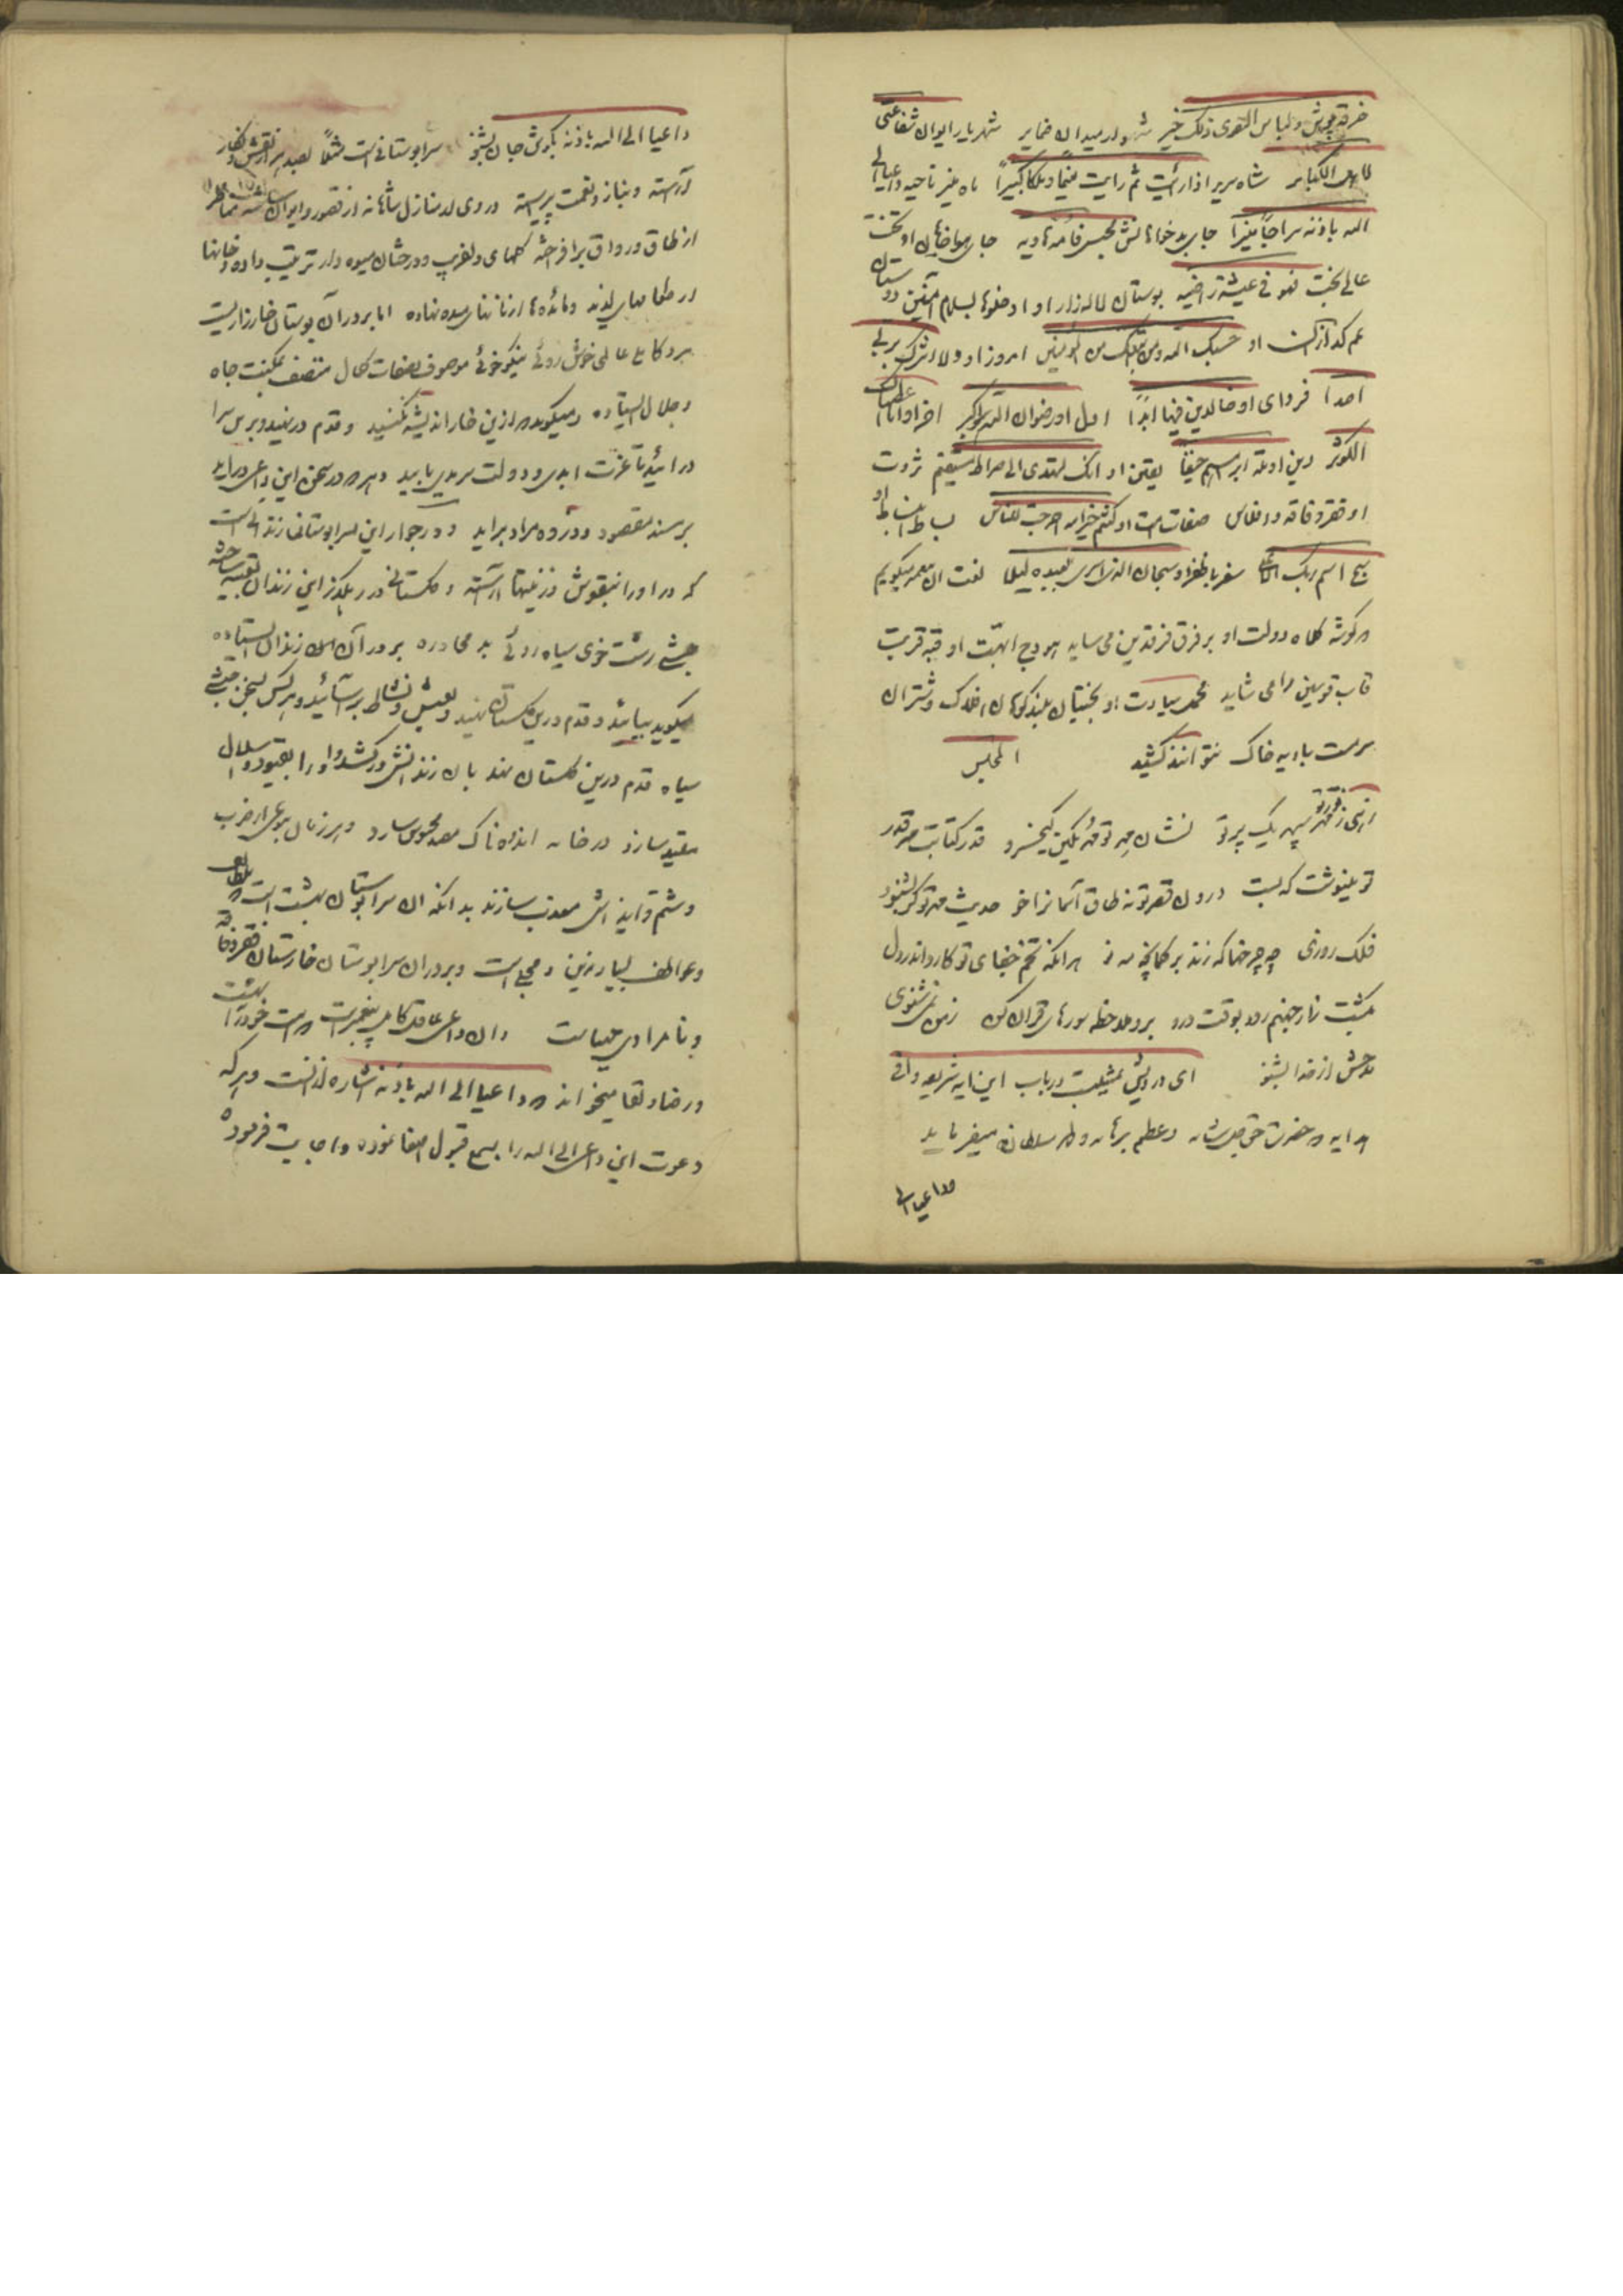 خرقه پوش و لباس التقوی ذلک خیر شهوار میدان ضمایر شهریار ایوان شفاعتی
لاهل الکبایر شاه سریر اذا رأیت ثم رایت نعیما و ملکا کبیرا ماه منیر ناحیه و داعیا الی
الله باذنه سراجا منیرا جای بدخواهانش بحبس فامه هاویه جای هواخواهان او تخت
عالی بخت فهو فی عیشة راضیه بوستان لاله زار او ادخلوها بسلام آمنین دوستان
غم گداز انس او حسبک الله و من اتبعک من المؤمنین امروز او و لا اشرک بربی
احدا فردای او خالدین فیها ابدا اول او رضوان الله اکبر آخر او انا اعطیناک
الکوثر دین او ملة ابراهیم حنیفا یقین او انک لتهدی الی صراط مستقیم ثروت
او فقر و فاقه و افلاس صفات امت او کنتم خیر امة اخرجت للناس بساط انبساط او
سبح اسم ربک الاعلی سفر با ظفر او سبحان الذی اسری بعبده لیلا نعت آن معمر میگویم
که گوشه کلاه دولت او بر فرق فرقدین می ساید هودج ابهت او قبه قربت
قاب قوسین را می شاید محمد سیادت او بختیان بلند کوهان افلاک و شتران
سرمست بادیه خاک نتوانند کشید المجلس
ای ز نور تو سپهر یک پرتو نشان مهر تو مهر نگین کیخسرو قدر کتابت هر قدر
تو بنوشت که بست درون قصر تو نه طاق آسمانرا خو حدیث مهر تو گر بشنود
فلک روزی چه چرخها که زند بر کمانچه مه نو هر آنکه تخم جفای تو کارد اندر دل
بکشت نار جهنم رود بوقت درو برو ملاحظه سورهای قرآن کن ز من نمی شنوی
مدحش از خدا بشنو ای درویش تمثیلیست در باب این آیه شریفه وافی
هدایه که حضرت حق جل شانه و عظم برهانه و سلطانه میفرماید
وداعیا الی
داعیا الی الله باذنه بگوش جان بشنو سرابوستانی است مثلا بصد هزار نقش و نگار
آراسته و بناز و نعمت پیراسته در وی از منازل شاهانه از قصور و ایوان
از طاق و رواق برافراخته گلهای دلفریب و درختان میوه دار ترتیب داده و خانها
از طعامهای لذیذ و مائده ها از نانهای میده نهاده اما بر در آن بوستان خارزاریست
بر در کاخ عالی خوش روئی نیکوخوئی موصوف بصفات کمال متصف بمکنت جاه
و جلال ایستاده و میگوید که ازین خار اندیشه مکنید و قدم در نهید و برین سرا
در آئید تا عزت ابدی و دولت سرمدی یابید و هر که در سخن این داعی در آید
بر مسند مقصود و ذروه مراد برآید و در جوار این سرابوستان زندانی است
که در او را بنقوش و زینتها آراسته و گلستانی در رهگذر این زندان تعبیه ساخته
حبشی زشت خوی سیاه روئی بد محاوره بر در آن زندان ایستاده
میگوید بیائید و قدم درین گلستان نهید و بعیش و نشاط بر آسائید و هر کس بسخن حبشی
سیاه قدم درین گلستان نهد بآن زندانش در کشد و او را بقیود و سلاسل
مقید سازد در خانه اندوهناک محبوس سازد و هر زمان بنوعی از ضرب
و شتم و ایذا اش معذب سازند بدانکه آن سرابوستان بهشت است که بلطایف
و عواطف بسیار مزین و محلی است و بر در آن سرابوستان خارستان فقر و فاقه
و نامرادی مهیاست و آن داعی عاقل کامل پیغمبر است که امت خود را بهشت
و رضا و لقا میخواند که داعیا الی الله باذنه اشاره از آنست و هر که
دعوت این داعی الی الله را بسمع قبول اصغا نموده و اجابت فرموده